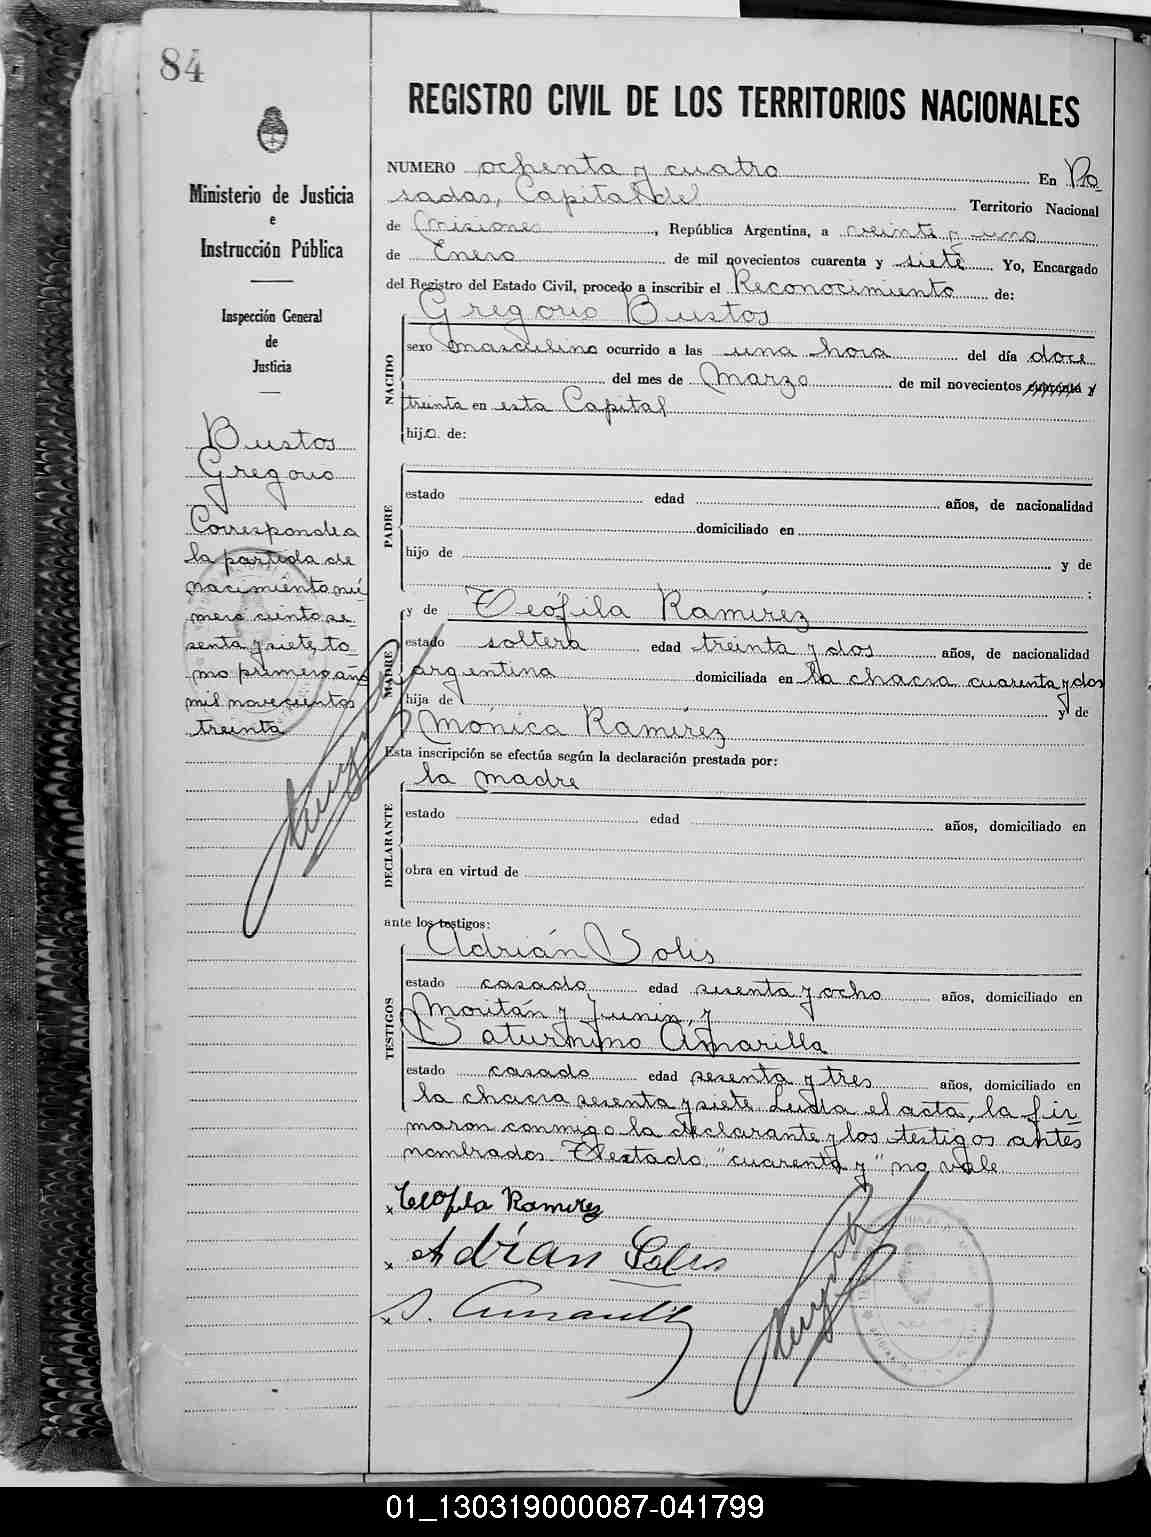 84
Ministerio de Justicia
e
Instrucción Pública
Inspección General
de
Justicia
Bustos
Gregorio
Corresponde a
la partida de
nacimiento nú-
mero ciento se-
senta y siete, to-
mo primero año
mil novecientos
treinta
REGISTRO CIVIL DE LOS TERRITORIOS NACIONALES
NUMERO ochenta y cuatro En Po-
sadas, Capital del Territorio Nacional
de Misiones, República Argentina, a veinte y uno
de Enero de mil novecientos cuarenta y siete Yo, Encargado
del Registro del Estado Civil, procedo a inscribir el Reconocimiento de:
Gregorio Bustos
NACIDO
sexo masculino ocurrido a las una hora del día doce
del mes de Marzo de mil novecientos cuarenta y
treinta en esta Capital
hijo de:
PADRE
estado edad años, de nacionalidad
domiciliado en
hijo de y de
;
MADRE
y de Teófila Ramírez
estado soltera edad treinta y dos años, de nacionalidad
argentina domiciliada en la chacra cuarenta y dos
hija de y de
Mónica Ramírez
Esta inscripción se efectúa según la declaración prestada por:
la madre
DECLARANTE
estado edad años, domiciliado en
obra en virtud de
ante los testigos:
Adrián Solis
TESTIGOS
estado casado edad sesenta y ocho años, domiciliado en
Moritán y Junin, y
Saturnino Amarilla
estado casado edad sesenta y tres años, domiciliado en
la chacra sesenta y siete Leída el acta, la fir-
maron conmigo la declarante y los testigos antes
nombrados Testado "cuarenta y" no vale
x Teofila Ramirez
x Adrian Solis
x S. Amarilla
01_130319000087-041799